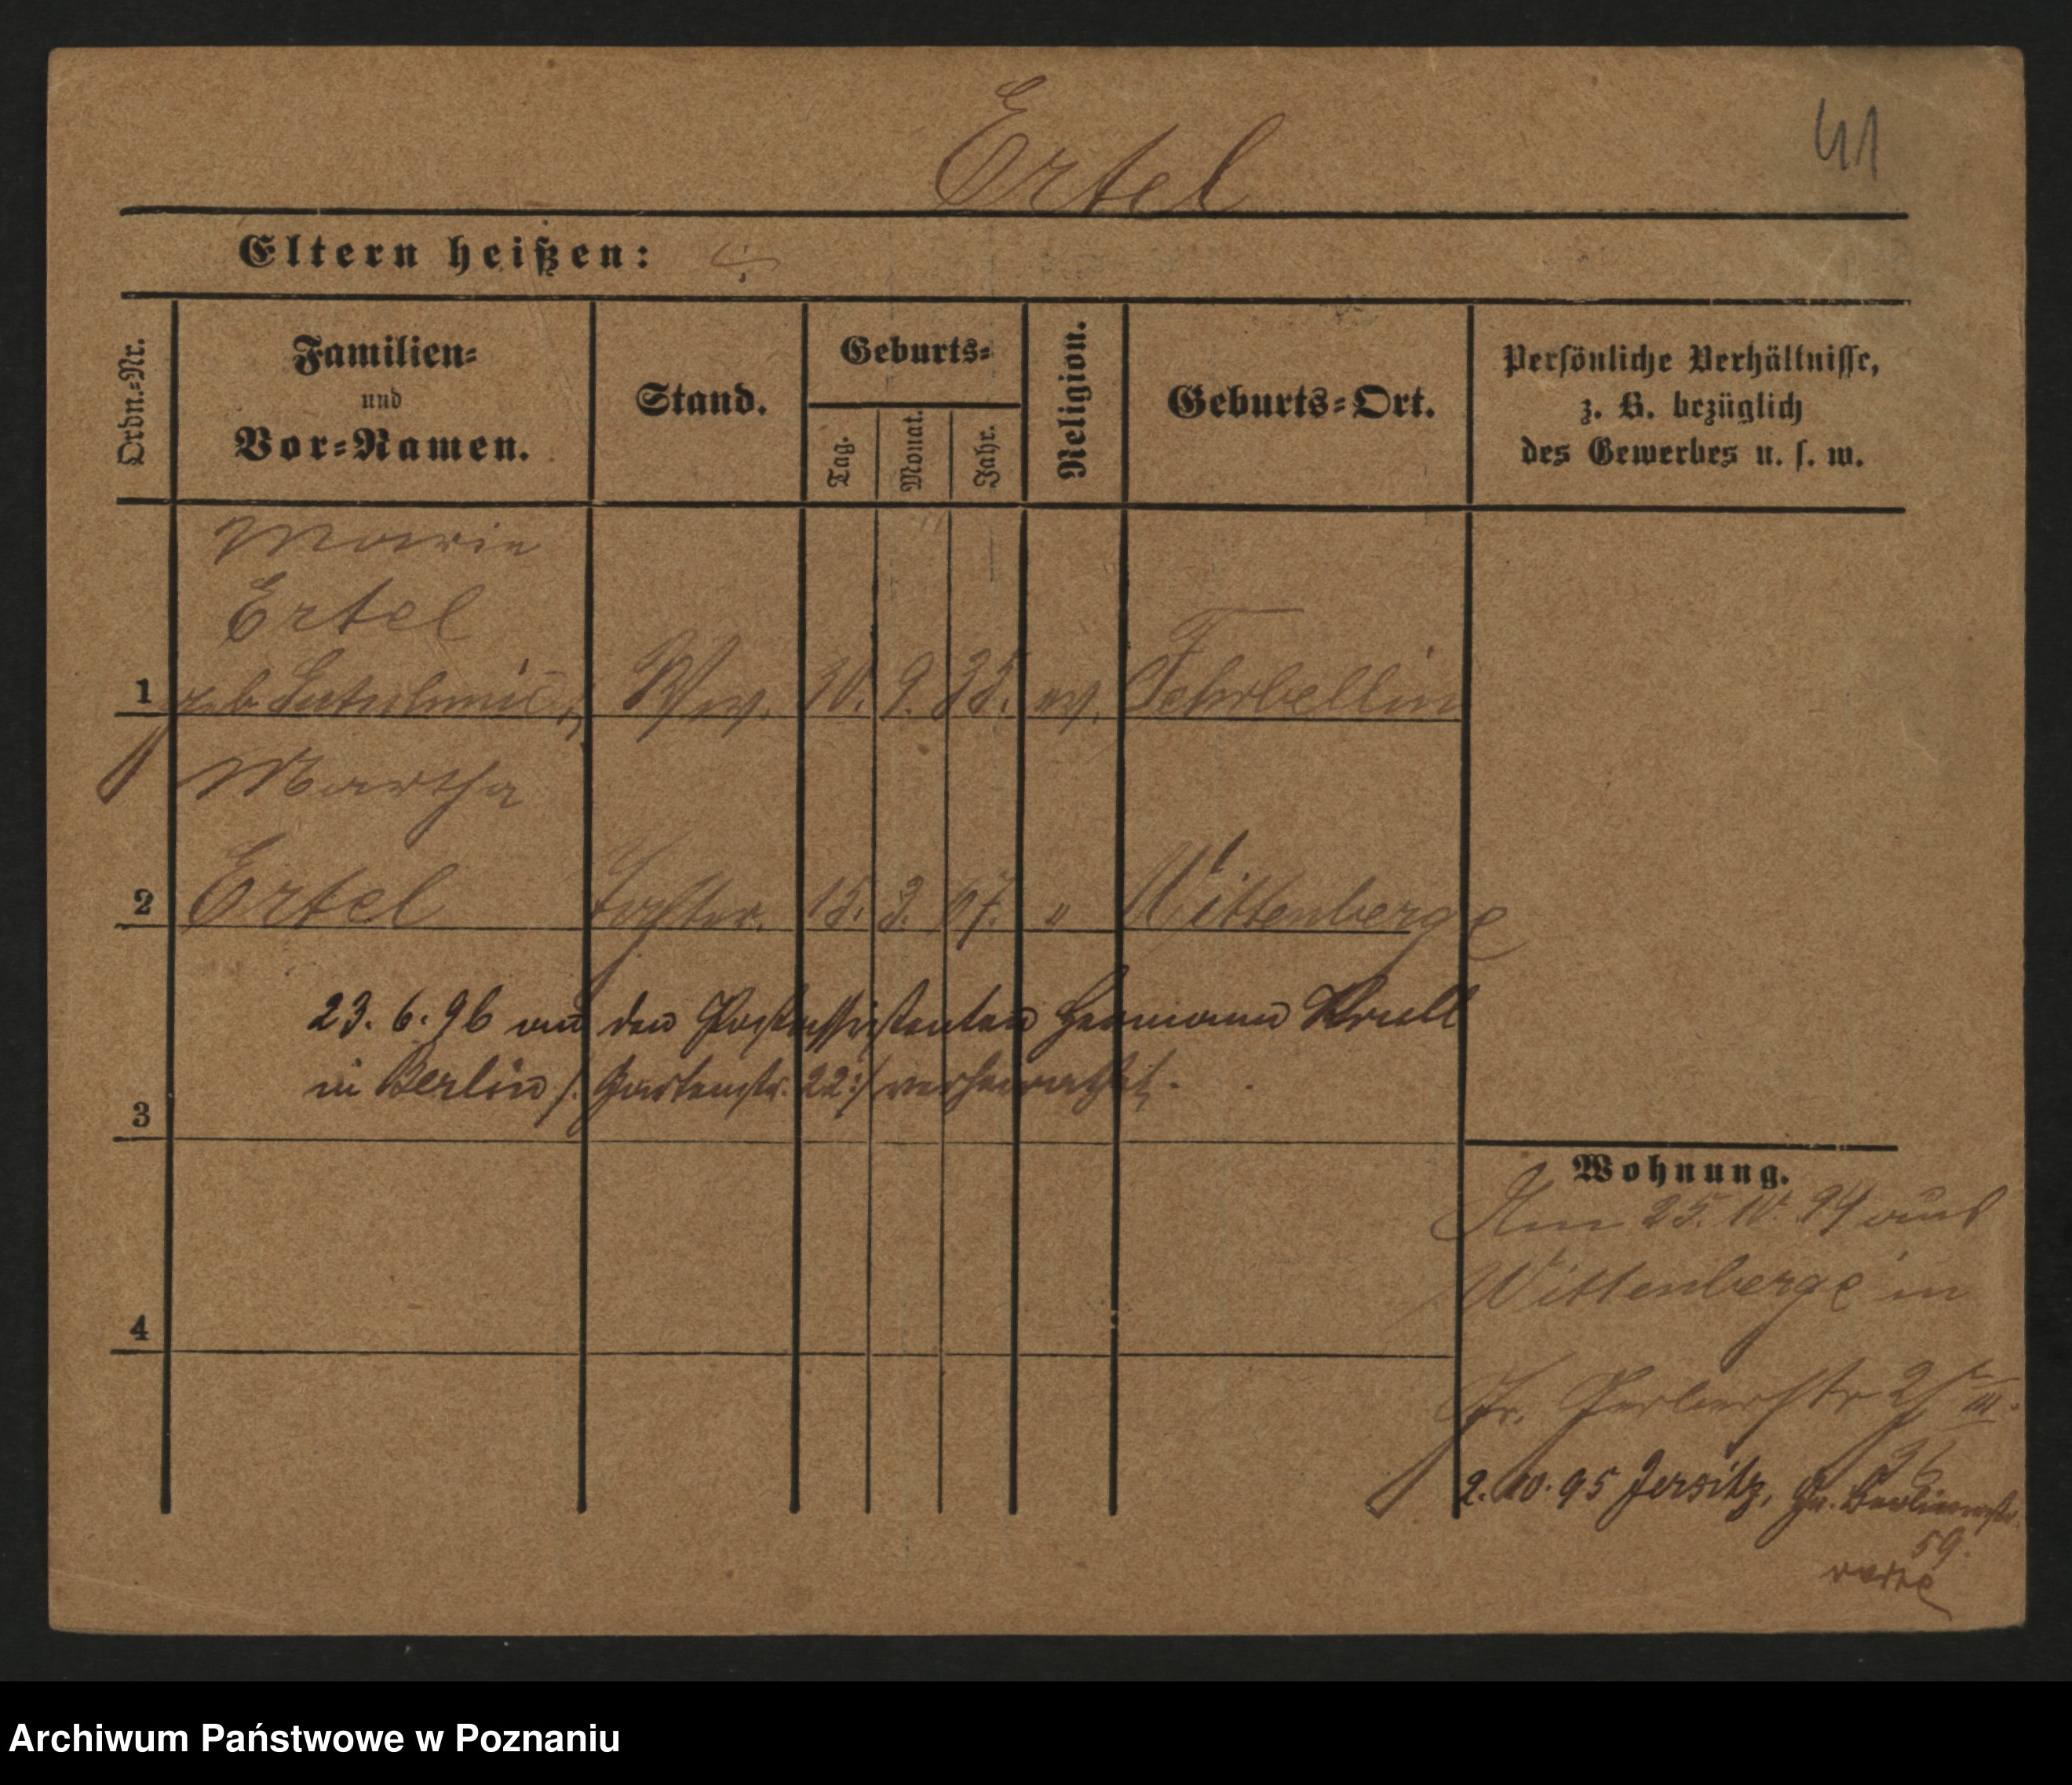 Ertel
41
Eltern heißen:
Ordn.-Nr.
Familien-
und
Vor-Namen.
Stand.
Geburts-
Tag.
Monat.
Jahr.
Religion.
Geburts-Ort.
Persönliche Verhältnisse,
z. B. bezüglich
des Gewerbes u. s. w.
Marie
Ertel
1 geb. Ww. 30. 9. 35. ev. Fehrbellin
Martha
2 Ertel Tochter. 15. 3. 67. " Wittenberge
23. 6. 96 an den Postassistenten Hermann Krull
in Berlin /: Gartenstr. 22 :/ verheirathet.
3
4
Wohnung.
Am 25. 10. 94 aus
Wittenberge in
2. 10. 95 Jersitz, Gr. Berlinerstr.
59.
Archiwum Państwowe w Poznaniu